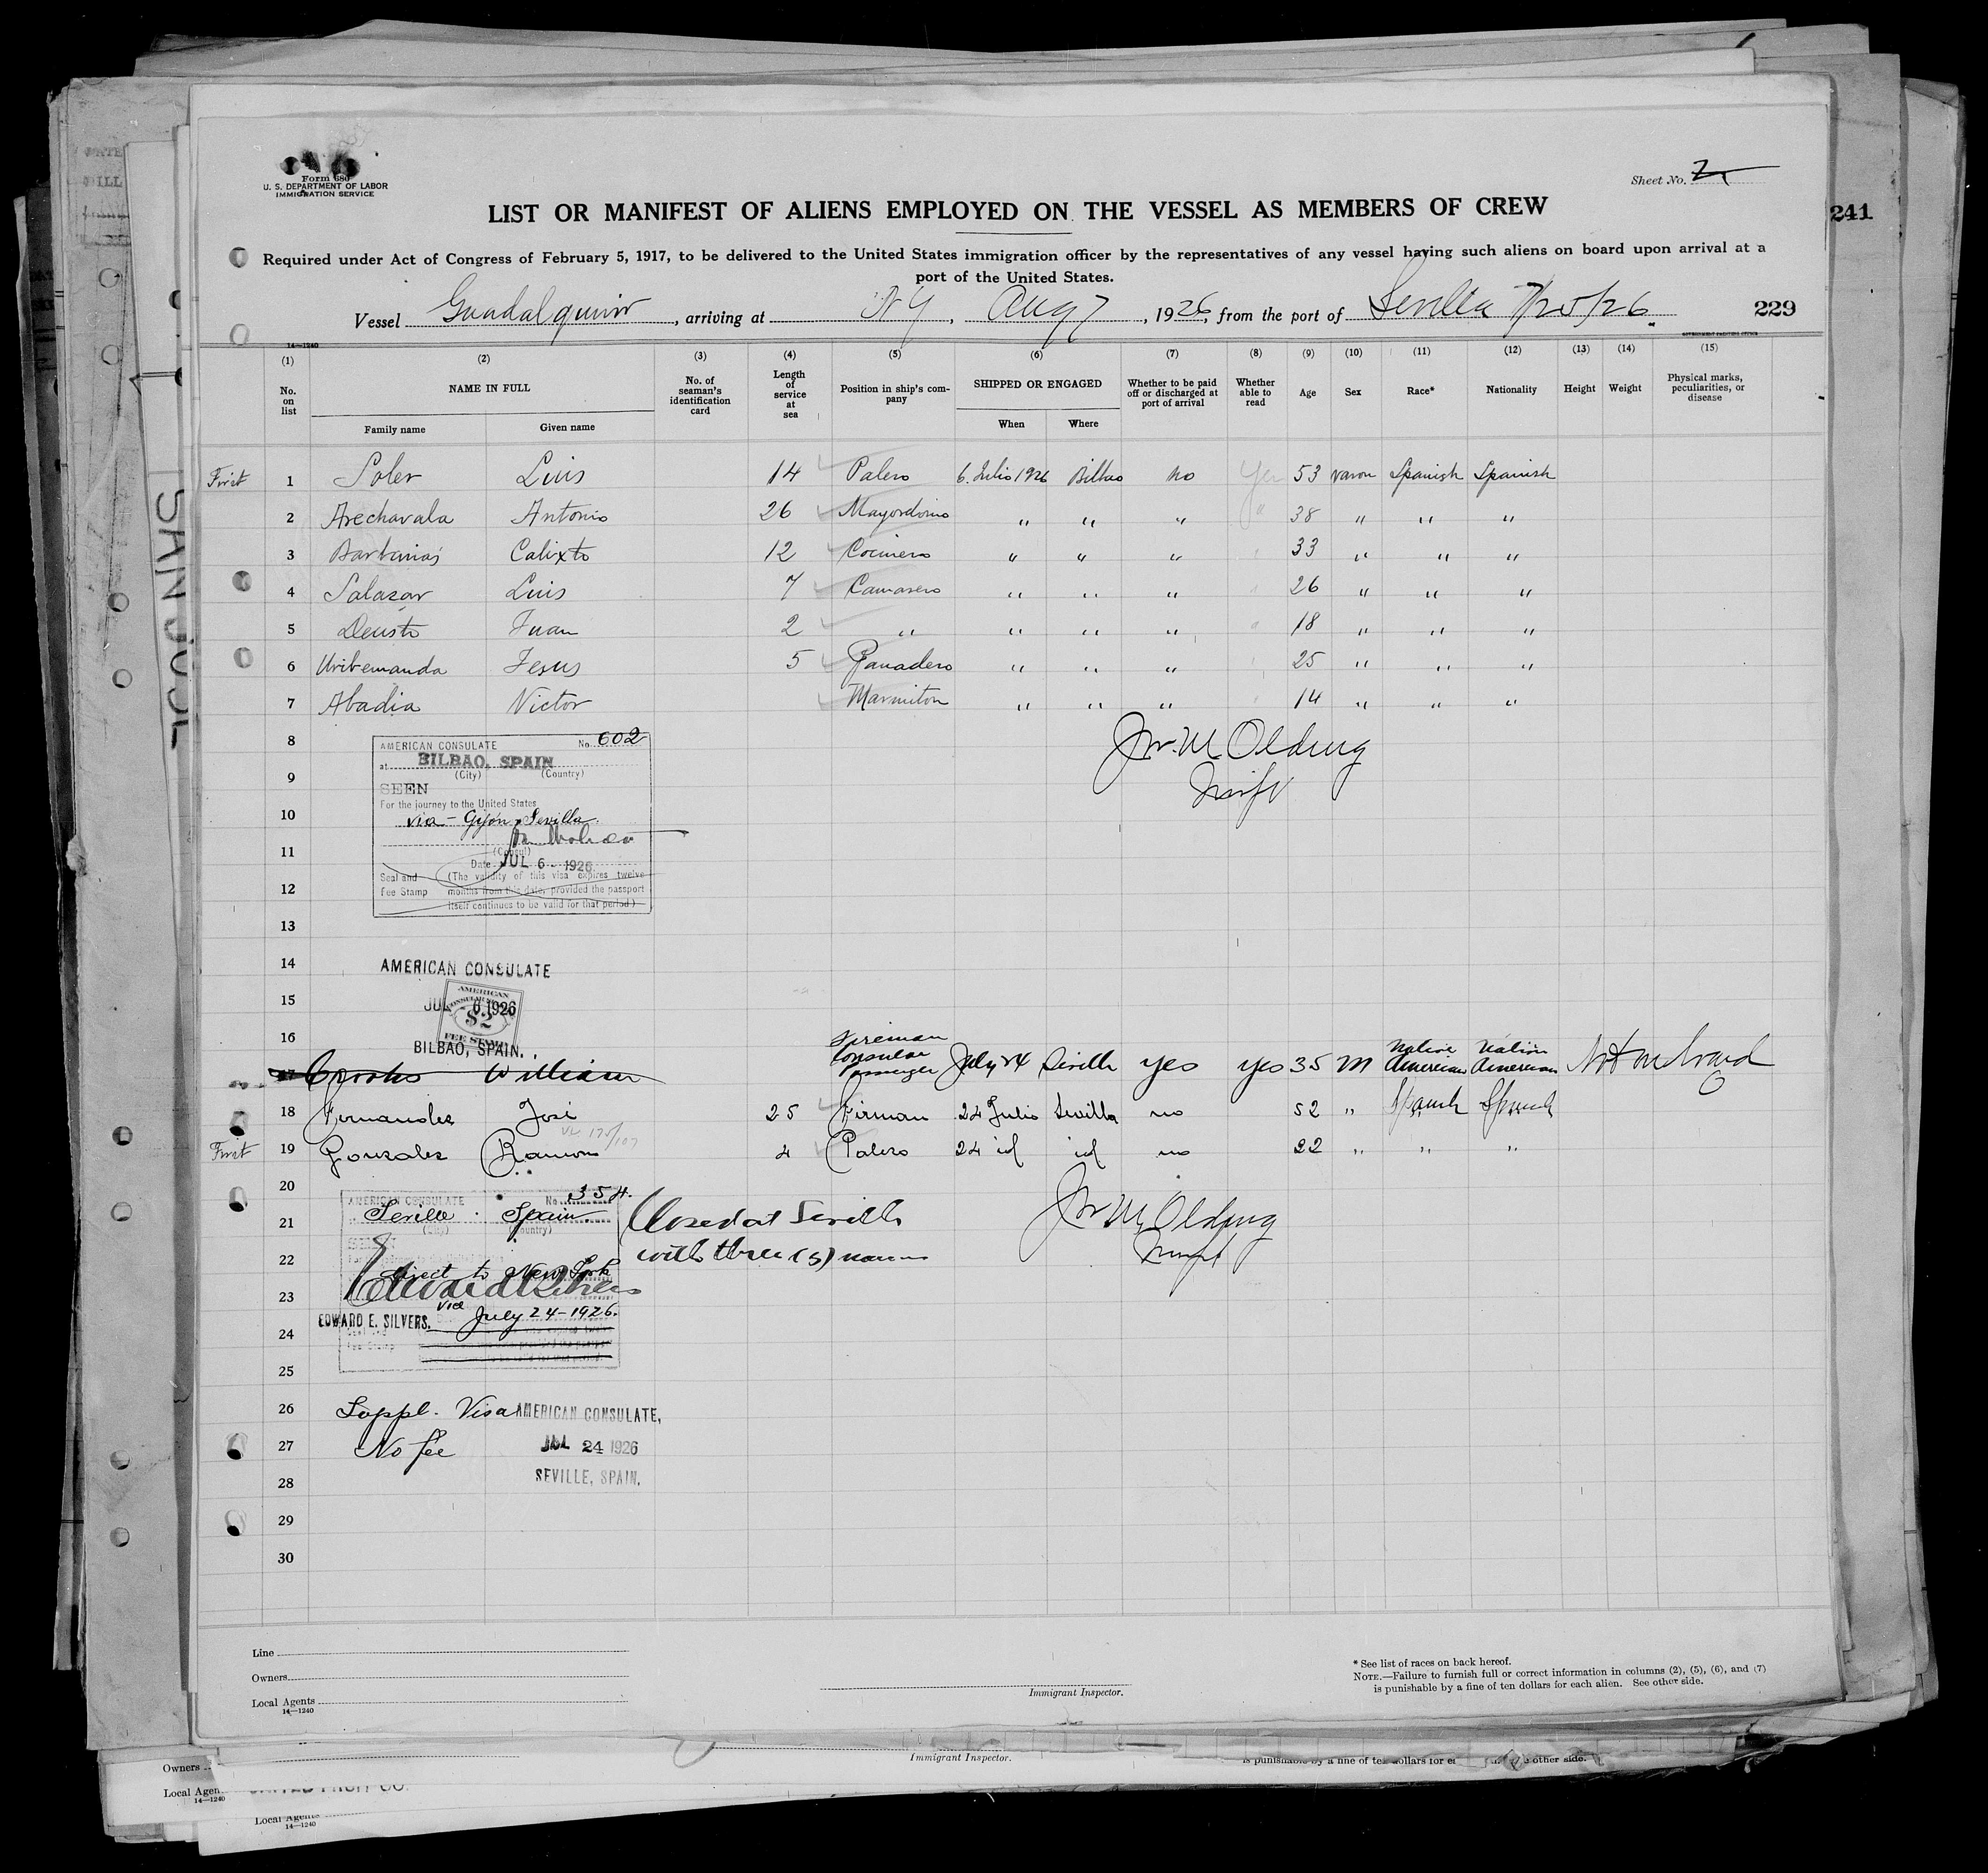 Form 680
U. S. DEPARTMENT OF LABOR
IMMIGRATION SERVICE
Sheet No. 2
LIST OR MANIFEST OF ALIENS EMPLOYED ON THE VESSEL AS MEMBERS OF CREW
241
Required under Act of Congress of February 5, 1917, to be delivered to the United States immigration officer by the representatives of any vessel having such aliens on board upon arrival at a
port of the United States.
Vessel Guadalquivir, arriving at NY, Aug 7, 1926, from the port of Sevilla 7/25/26.
229
14—1240
(1) (2) (3) (4) (5) (6) (7) (8) (9) (10) (11) (12) (13) (14) (15)
No. on list NAME IN FULL No. of seaman's identification card Length of service at sea Position in ship's company SHIPPED OR ENGAGED Whether to be paid off or discharged at port of arrival Whether able to read Age Sex Race* Nationality Height Weight Physical marks, peculiarities, or disease
Family name Given name When Where
First 1 Soler Luis 14 Palero 6. Julio 1926 Bilbao no Yes 53 varon Spanish Spanish
2 Arechavala Antonio 26 Mayordomo " " " " 38 " " "
3 Calixto 12 Cocinero " " " 33 " " "
4 Salazar Luis 7 Camarero " " " 26 " " "
5 Deusto Juan 2 " " " " 18 " " "
6 Uribemanda Jesus 5 Panadero " " " 25 " " "
7 Abadia Victor Marmiton " " " 14 " " "
8
9
10
11
12
13
14
15
16
AMERICAN CONSULATE No. 602
at BILBAO, SPAIN
(City) (Country)
SEEN
For the journey to the United States
via - Gijón, Sevilla.
(Consul)
Date JUL 6 - 1926
Seal and Fee Stamp (The validity of this visa expires twelve
months from this date, provided the passport
itself continues to be valid for that period)
Jno. M Olding
AMERICAN CONSULATE
JUL 6 1926
AMERICAN CONSULAR $2 FEE STAMP
BILBAO, SPAIN.
17 William Fireman Consular Passenger July 24 Seville yes yes 35 M Native American Native American Not on board
18 Fernandez José 25 Firman 24 Julio Sevilla no 52 " Spanish Spanish
First 19 Gonzalez Ramon 4 Palero 24 id id no 22 " " "
20
21
22
23
24
25
26
27
28
29
30
AMERICAN CONSULATE No. 354.
Seville Spain
(City) (Country)
direct to New York
EDWARD E. SILVERS.
July 24-1926.
Closed at Seville
with three (3) names
Jno M Olding
Suppl. Visa
No fee
AMERICAN CONSULATE,
JUL 24 1926
SEVILLE, SPAIN.
Line
Owners
Local Agents
14—1240
Immigrant Inspector.
* See list of races on back hereof.
NOTE.—Failure to furnish full or correct information in columns (2), (5), (6), and (7)
is punishable by a fine of ten dollars for each alien. See other side.
Owners
Immigrant Inspector.
Local Agen
14—1240
Local Agents
14—1240